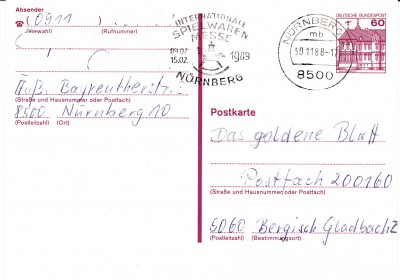 Absender
(0911)
(Vorwahl) (Rufnummer)
Äuß. Bayreutherstr.
(Straße und Hausnummer oder Postfach)
8500 Nürnberg 10
(Postleitzahl) (Ort)
INTERNATIONALE
SPIELWAREN
MESSE
09.02.
15.02. 1989
NÜRNBERG
NÜRNBERG
mb
30.11.88-17
8500
DEUTSCHE BUNDESPOST
60
Postkarte
Das goldene Blatt
Postfach 200160
(Straße und Hausnummer oder Postfach)
5060 Bergisch Gladbach 2
(Postleitzahl) (Bestimmungsort)